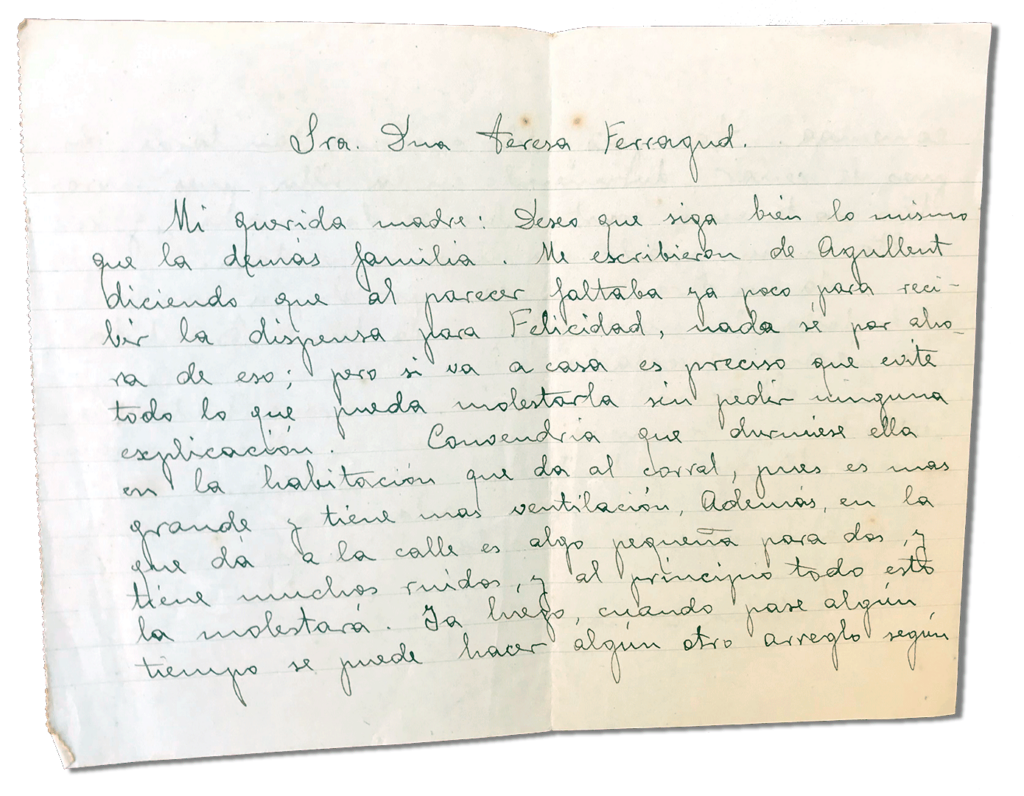 Sra. Dña Teresa Ferragud.
Mi querida madre: Deseo que siga bién lo mismo
que la demás familia. Me escribieron de Agullent
diciendo que al parecer faltaba ya poco para reci-
bir la dispensa para Felicidad, nada sé por aho-
ra de eso; pero si va a casa es preciso que evite
todo lo que pueda molestarla sin pedir ninguna
explicación. Convendria que durmiese ella
en la habitación que da al corral, pues es mas
grande y tiene mas ventilación, Además, en la
que dá a la calle es algo pequeña para dos, y
tiene muchos ruidos, y al principio todo ésto
la molestará. Ya luego, cuándo pase algún
tiempo se puede hacer algún otro arreglo según